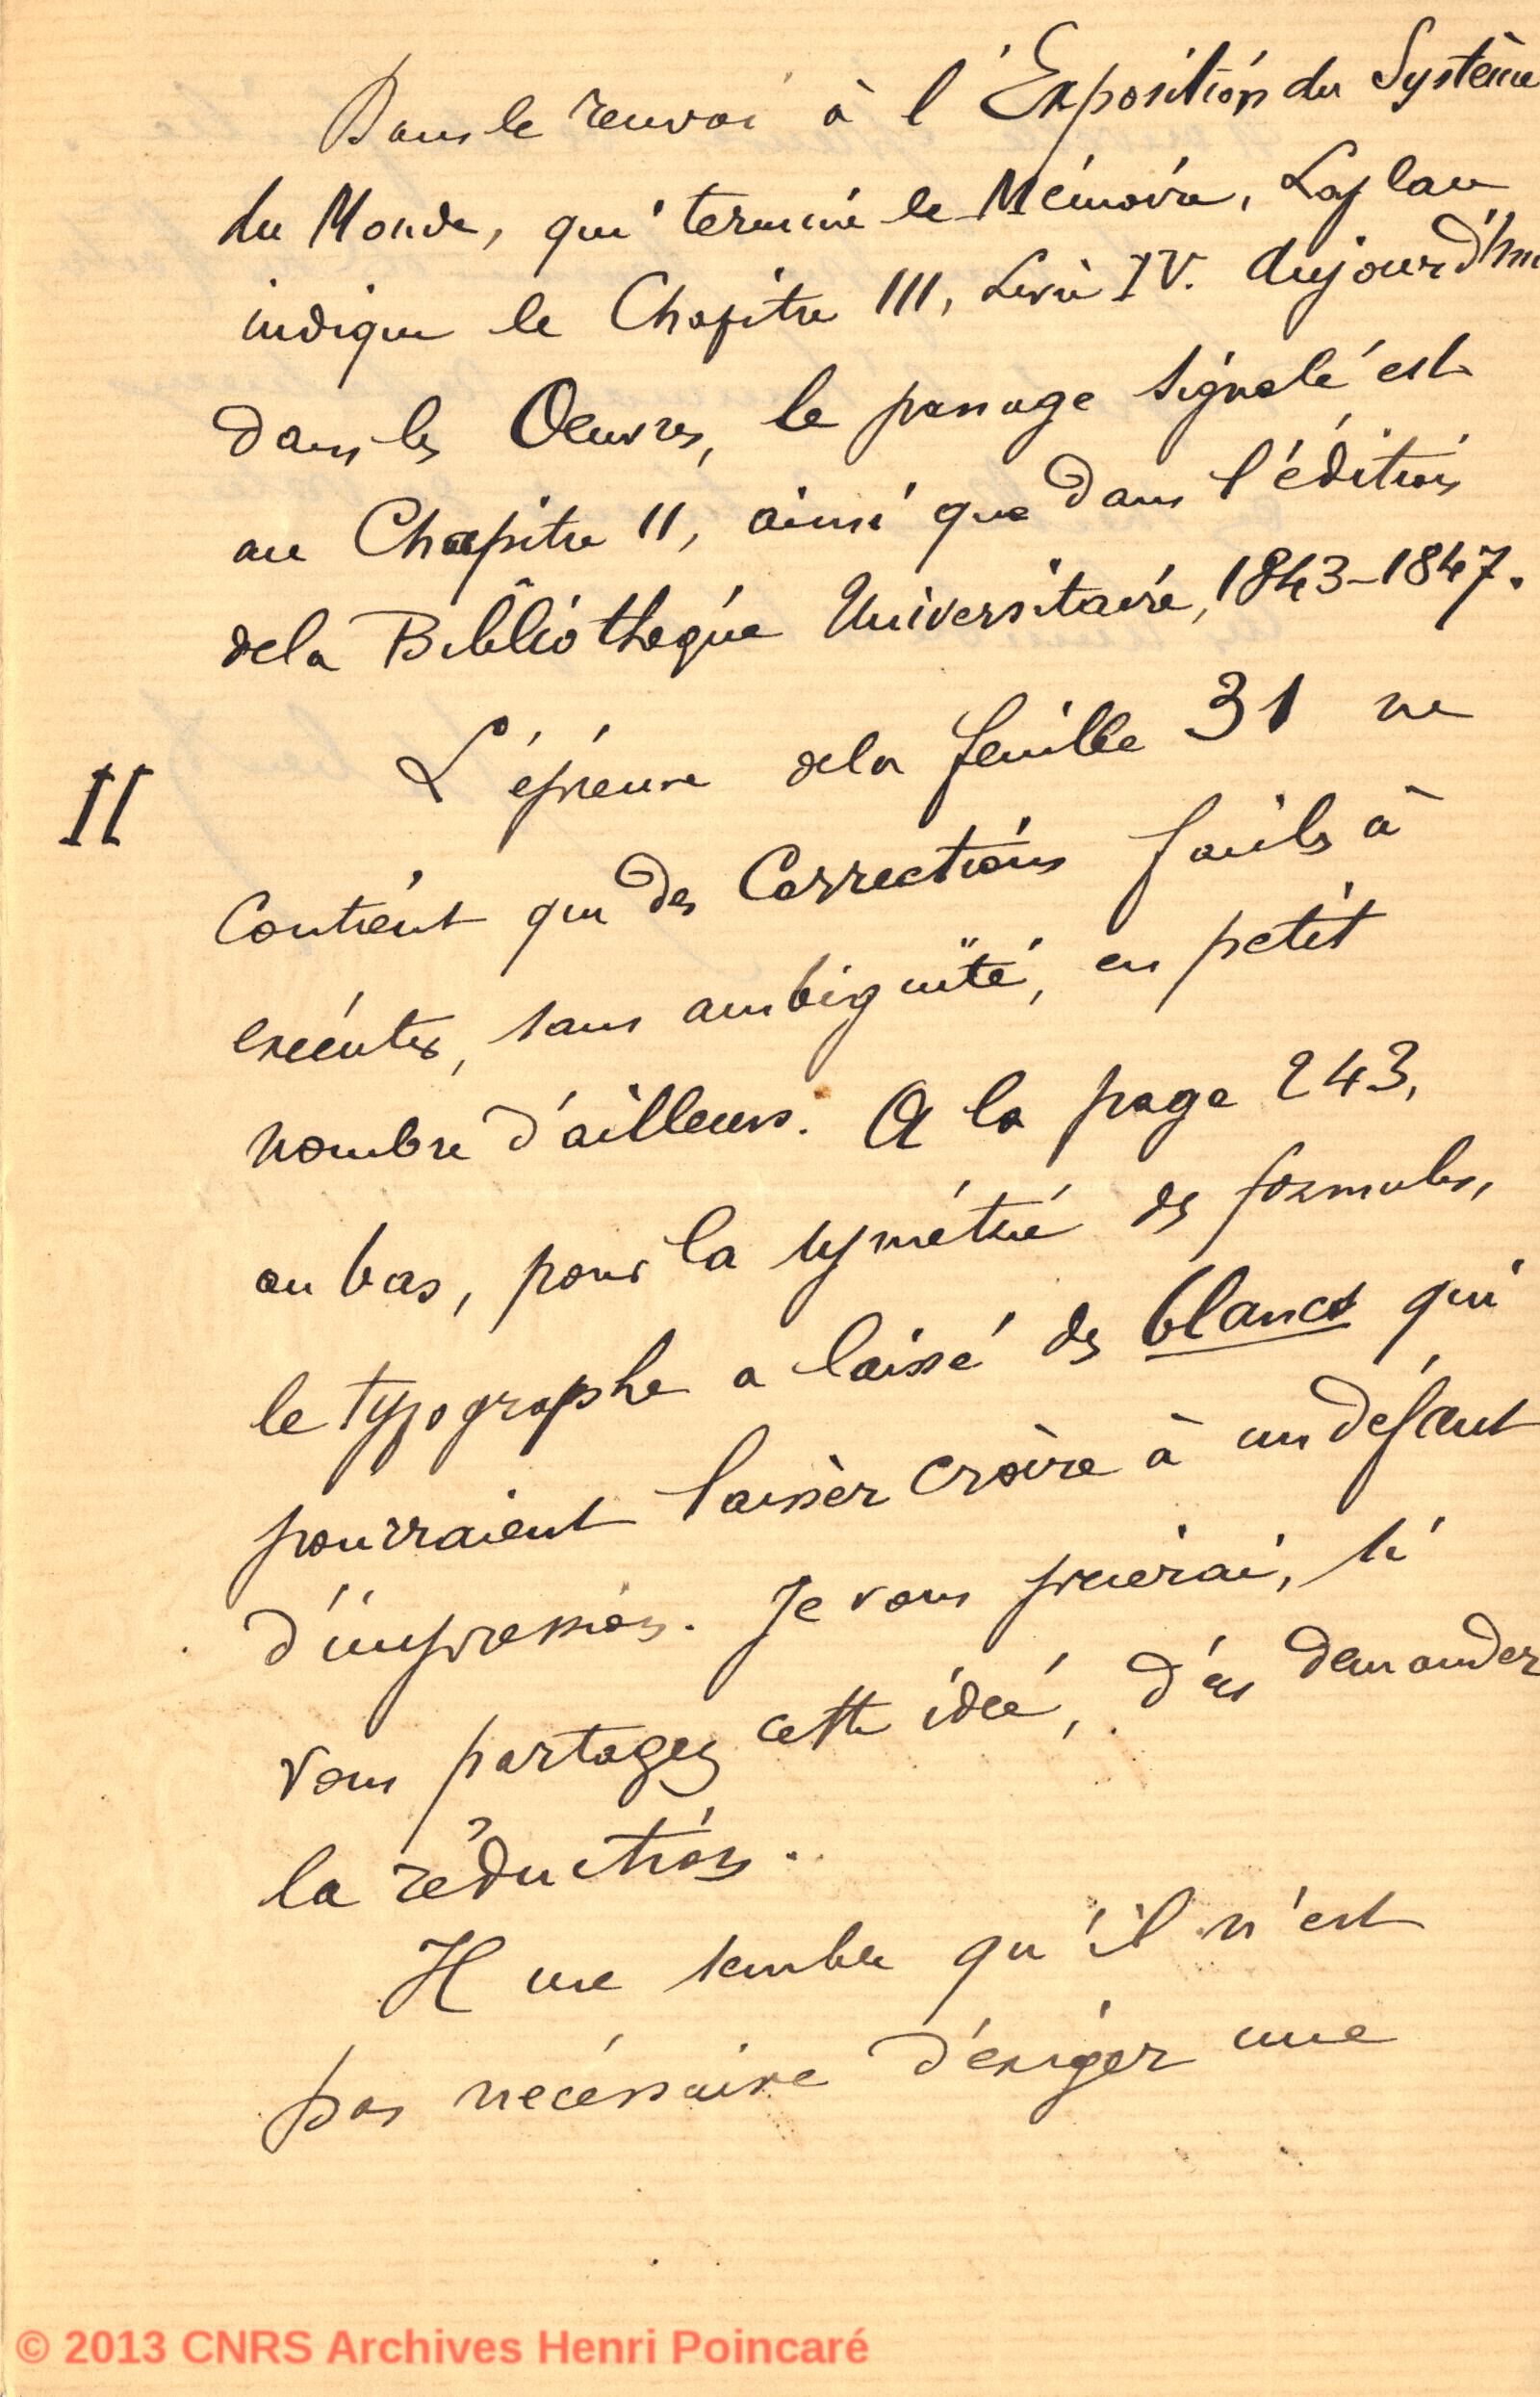 Dans le renvoi à l'Exposition du Système
du Monde, qui termine le Mémoire, Laplace
indique le Chapitre III, Livre IV. Aujourd'hui
dans les Oeuvres, le passage signalé est
au Chapitre II, ainsi que dans l'édition
de la Bibliothèque Universitaire, 1843-1847.
II L'épreuve de la feuille 31 ne
contient que des Corrections faciles à
exécuter, sans ambiguïté, en petit
nombre d'ailleurs. A la page 243,
au bas, pour la symétrie des formules,
le typographe a laissé des blancs qui
pourraient laisser croire à un défaut
d'impression. Je vous prierai, si
vous partagez cette idée, d'en demander
la réduction.
Il me semble qu'il n'est
pas nécessaire d'exiger une
© 2013 CNRS Archives Henri Poincaré